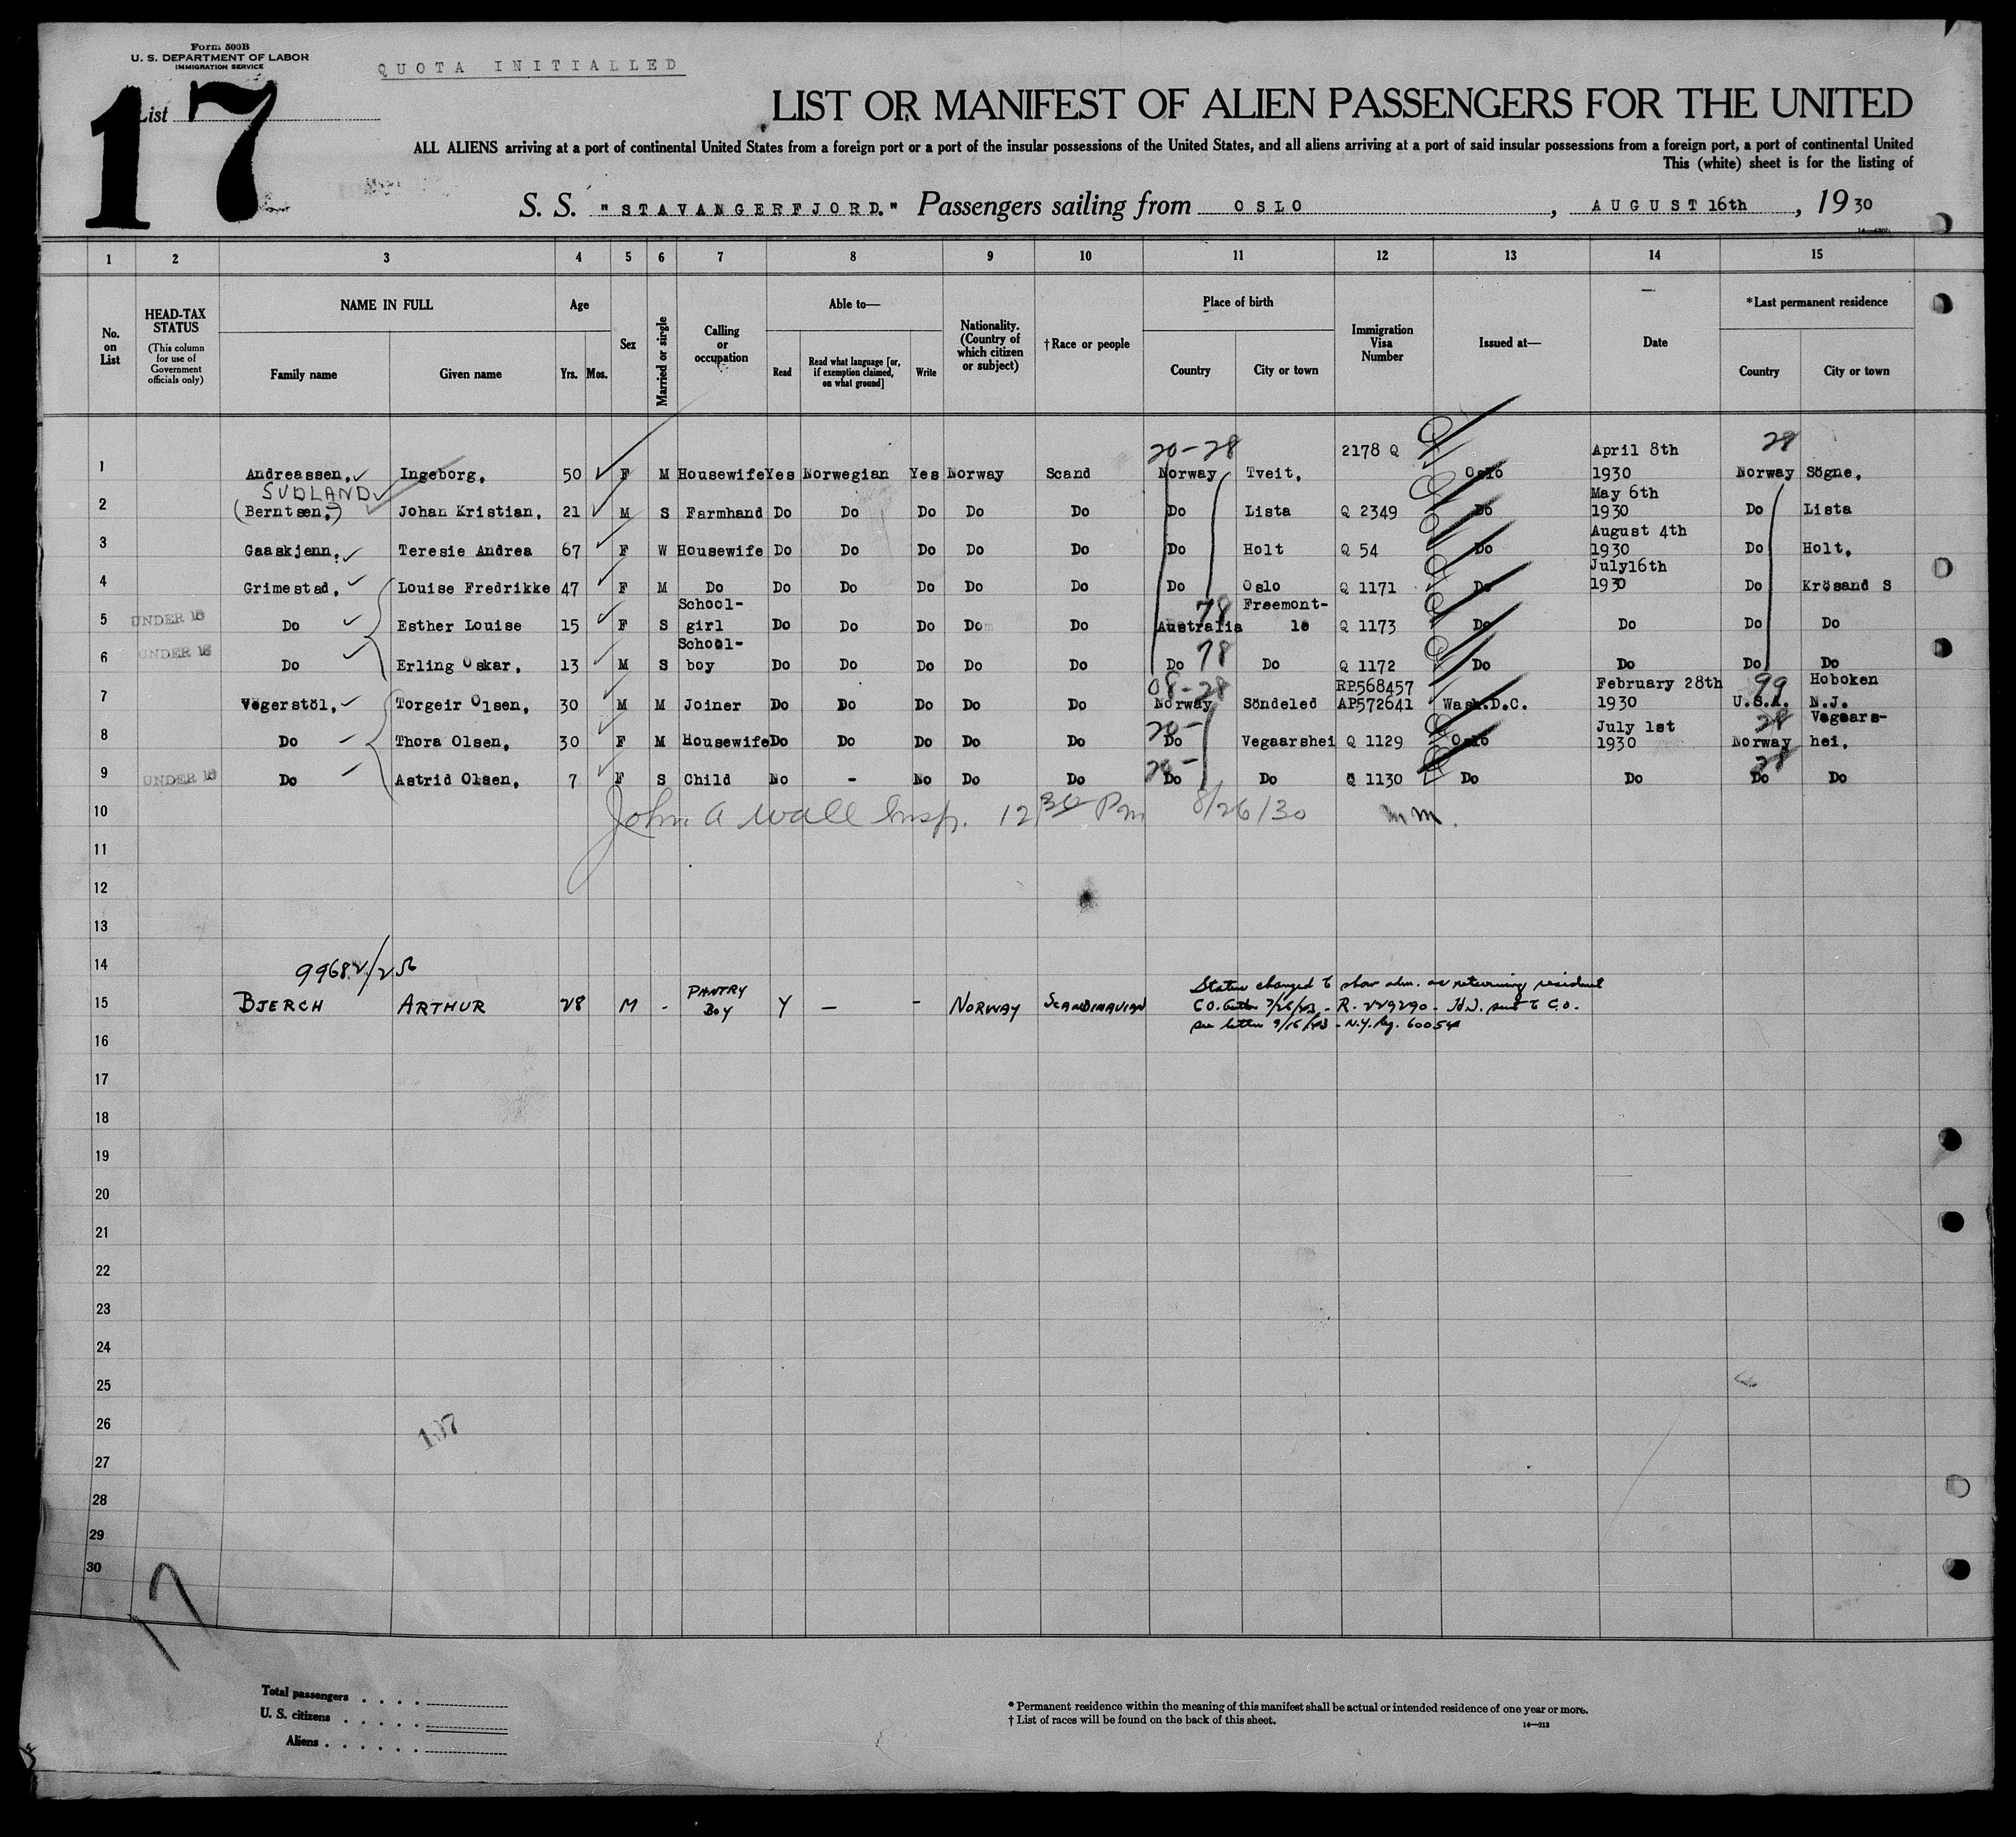 Form 500B
U. S. DEPARTMENT OF LABOR
IMMIGRATION SERVICE
QUOTA INITIALLED
List 17
LIST OR MANIFEST OF ALIEN PASSENGERS FOR THE UNITED
ALL ALIENS arriving at a port of continental United States from a foreign port or a port of the insular possessions of the United States, and all aliens arriving at a port of said insular possessions from a foreign port, a port of continental United
This (white) sheet is for the listing of
S. S. "STAVANGERFJORD." Passengers sailing from OSLO, AUGUST 16th, 1930
1 2 3 4 5 6 7 8 9 10 11 12 13 14 15
No. on List
HEAD-TAX STATUS
(This column for use of Government officials only)
NAME IN FULL
Family name Given name
Age
Yrs. Mos.
Sex
Married or single
Calling or occupation
Able to—
Read
Read what language [or, if exemption claimed, on what ground]
Write
Nationality. (Country of which citizen or subject)
†Race or people
Place of birth
Country City or town
Immigration Visa Number
Issued at—
Date
*Last permanent residence
Country City or town
20-28 28
1 Andreassen, Ingeborg, 50 F M Housewife Yes Norwegian Yes Norway Scand Norway Tveit, 2178 Q Oslo April 8th 1930 Norway Sögne,
SUDLAND
2 (Berntsen,) Johan Kristian, 21 M S Farmhand Do Do Do Do Do Do Lista Q 2349 Do May 6th 1930 Do Lista
3 Gaaskjenn, Teresie Andrea 67 F W Housewife Do Do Do Do Do Do Holt Q 54 Do August 4th 1930 Do Holt,
4 Grimestad, Louise Fredrikke 47 F M Do Do Do Do Do Do Do Oslo Q 1171 Do July16th 1930 Do Krösand S
78
5 UNDER 16 Do Esther Louise 15 F S School-girl Do Do Do Do Do Australia Freemont-le Q 1173 Do Do Do Do
78
6 UNDER 16 Do Erling Oskar, 13 M S School-boy Do Do Do Do Do Do Do Q 1172 Do Do Do Do
08-28 99
7 Vegerstöl, Torgeir Olsen, 30 M M Joiner Do Do Do Do Do Norway Söndeled RP568457 AP572641 Wash.D.C. February 28th 1930 U.S.A. Hoboken N.J.
20- 28
8 Do Thora Olsen, 30 F M Housewife Do Do Do Do Do Do Vegaarshei Q 1129 Oslo July 1st 1930 Norway Vegaars-hei,
20- 28
9 UNDER 16 Do Astrid Olsen, 7 F S Child No - No Do Do Do Do Q 1130 Do Do Do Do
10 John A Wall Insp. 12 30 Pm 8/26/30 mm.
11
12
13
14
15 BJERCH ARTHUR 28 M - PANTRY BOY Y — - NORWAY SCANDINAVIAN
Status changed to show adm. as returning resident
C.O. letter 7/26/43 - R. 229290 - sent to C.O.
see letter 9/16/43 - N.Y. 60054
16
17
18
19
20
21
22
23
24
25
26
107
27
28
29
30
17
Total passengers . . . .
U. S. citizens . . . . .
Aliens . . . . . .
* Permanent residence within the meaning of this manifest shall be actual or intended residence of one year or more.
† List of races will be found on the back of this sheet.
14—213